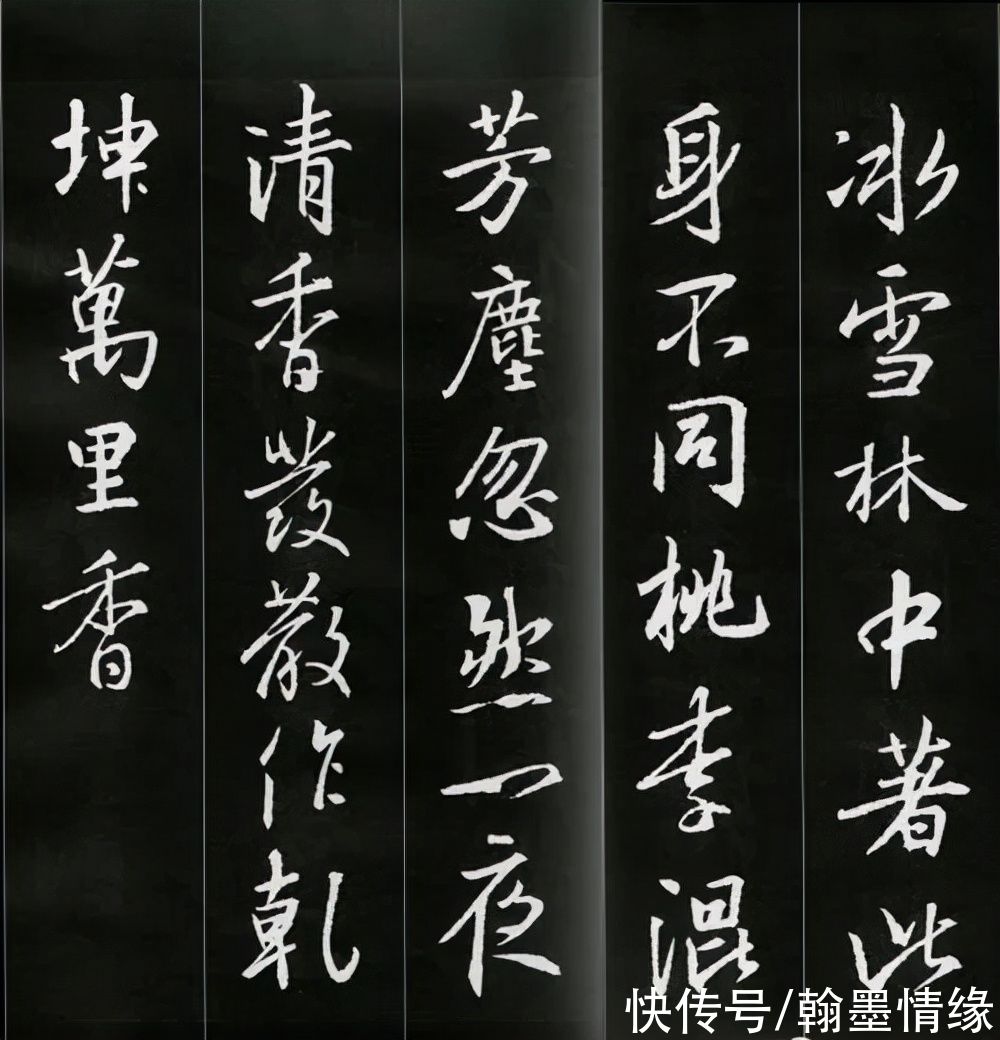 冰雪林中著此
身不同桃李混
芳塵忽然一夜
清香發散作乾
坤萬里香
快传号/翰墨情缘